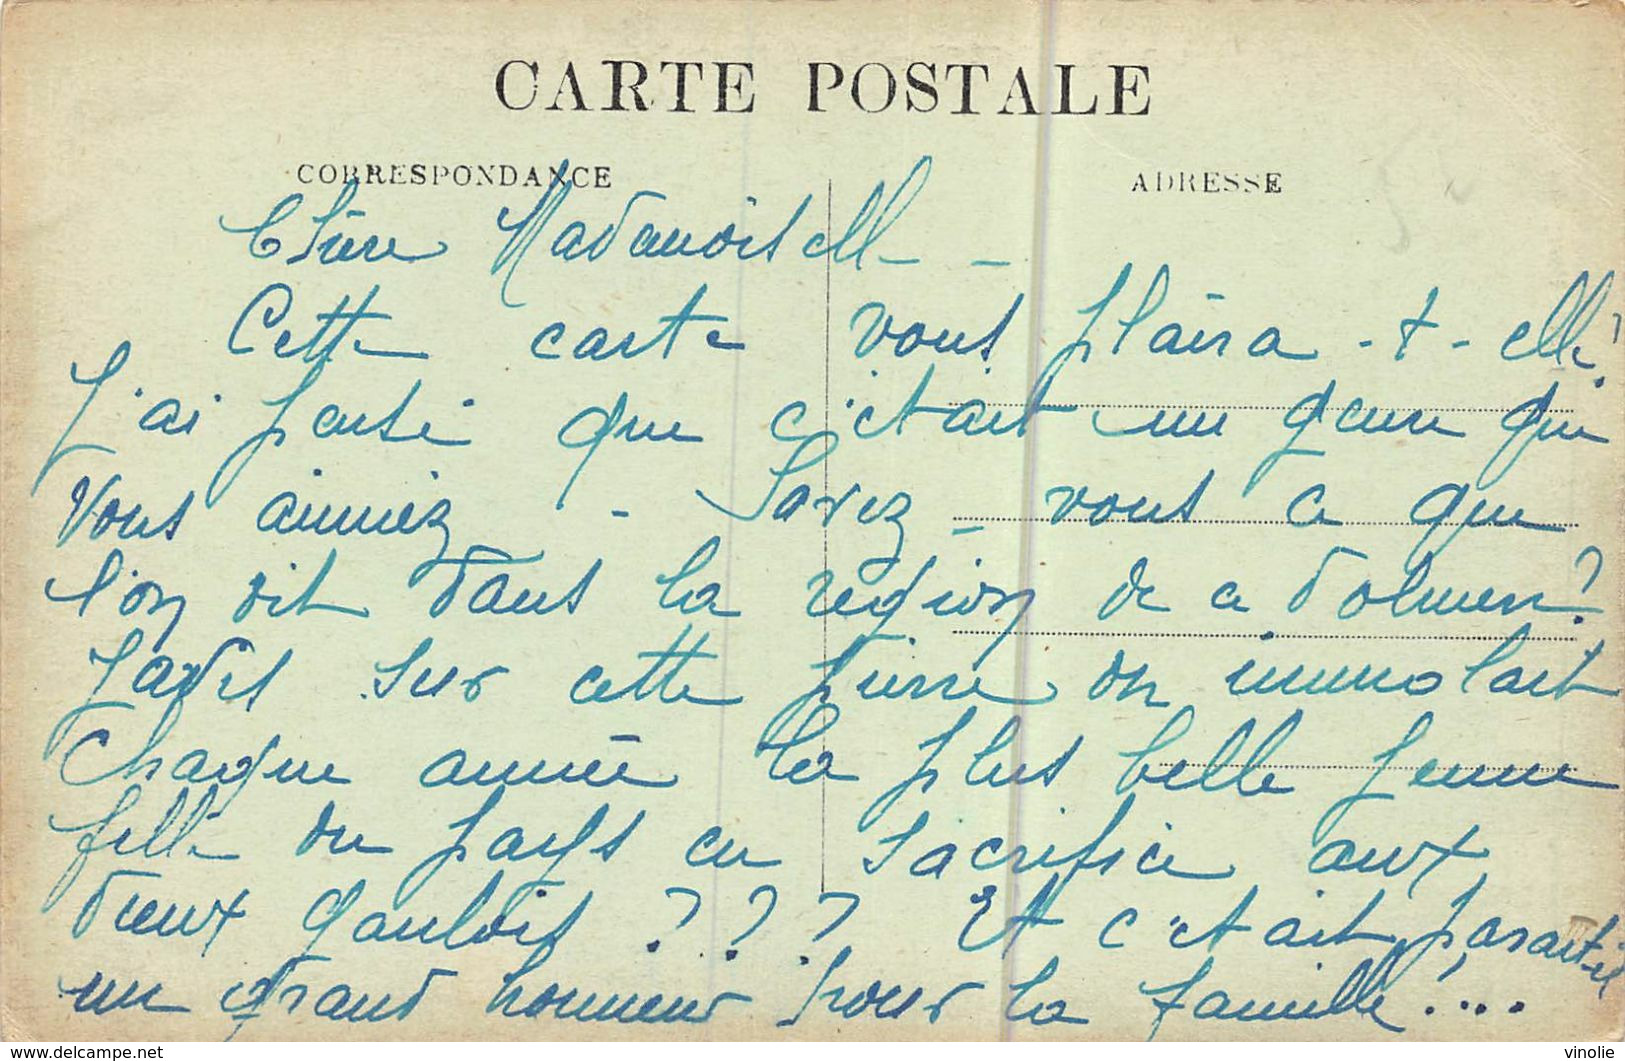 CARTE POSTALE
CORRESPONDANCE
ADRESSE
Chère Mademoiselle -
Cette carte vous plaira-t-elle?
J'ai pensé que c'était un genre que
vous aimiez - Savez-vous ce que
l'on dit dans la région de ce dolmen?
Jadis sur cette pierre on immolait
chaque année la plus belle jeune
fille du pays en sacrifice aux
dieux gaulois ??? Et c'était, paraît-il
un grand honneur pour la famille!...
www.delcampe.net
vinolie